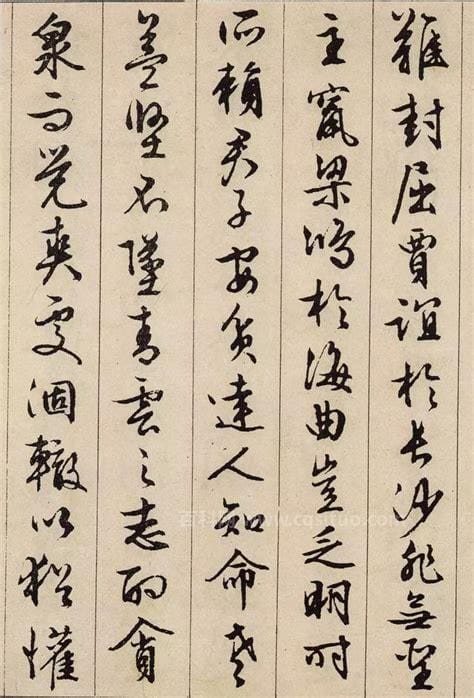 難封屈賈誼於長沙非無聖
主竄梁鴻於海曲豈乏明時
所賴君子安貧達人知命老
益堅不墜青雲之志酌貪
泉而覺爽處涸轍以猶懽
www.cqsituo.com